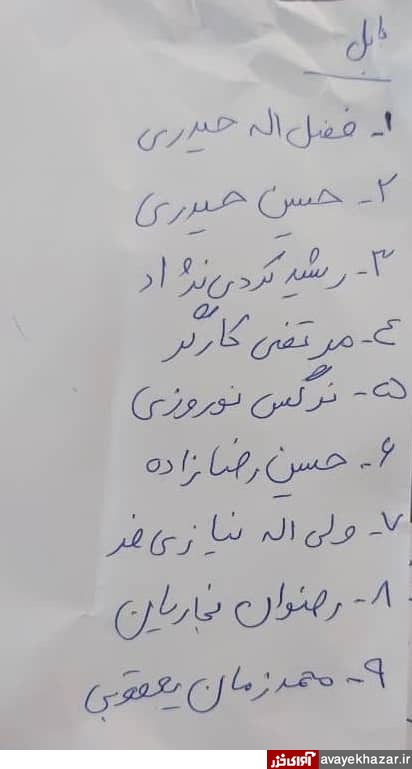 بابل
۱- فضل اله حیدری
۲- حسین حیدری
۳- رشید کردی نژاد
٤- مرتضی کارگر
۵- نرگس نوروزی
۶- حسین رضازاده
۷- ولی اله نیازی فر
۸- رضوان نجاریان
۹- محمدزمان یعقوبی
آوای خزر avayekhazar.ir